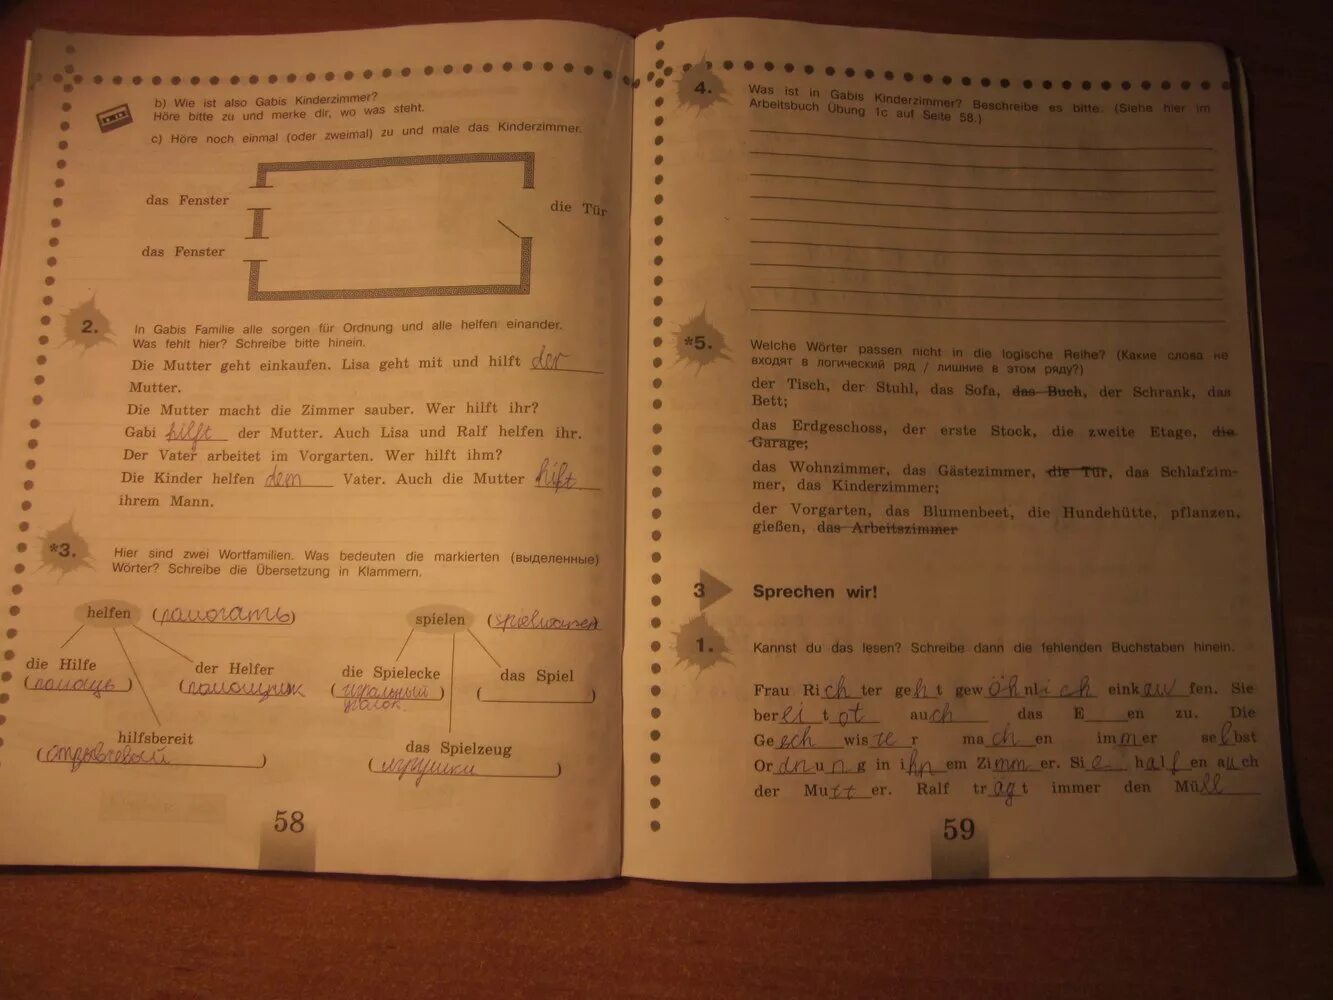 b) Wie ist also Gabis Kinderzimmer?
Höre bitte zu und merke dir, wo was steht.
c) Höre noch einmal (oder zweimal) zu und male das Kinderzimmer.
das Fenster
die Tür
das Fenster
2. In Gabis Familie alle sorgen für Ordnung und alle helfen einander.
Was fehlt hier? Schreibe bitte hinein.
Die Mutter geht einkaufen. Lisa geht mit und hilft der
Mutter.
Die Mutter macht die Zimmer sauber. Wer hilft ihr?
Gabi hilft der Mutter. Auch Lisa und Ralf helfen ihr.
Der Vater arbeitet im Vorgarten. Wer hilft ihm?
Die Kinder helfen dem Vater. Auch die Mutter hift
ihrem Mann.
*3. Hier sind zwei Wortfamilien. Was bedeuten die markierten (выделенные)
Wörter? Schreibe die Übersetzung in Klammern.
helfen (помогать)
spielen (spielwaren)
die Hilfe
(помощь)
der Helfer
(помощник
die Spielecke
(игральный)
уголок
das Spiel
( )
hilfsbereit
(отзывчевый )
das Spielzeug
(игрушки )
58
4. Was ist in Gabis Kinderzimmer? Beschreibe es bitte. (Siehe hier im
Arbeitsbuch Übung 1c auf Seite 58.)
*5. Welche Wörter passen nicht in die logische Reihe? (Какие слова не
входят в логический ряд / лишние в этом ряду?)
der Tisch, der Stuhl, das Sofa, das Buch, der Schrank, das
Bett;
das Erdgeschoss, der erste Stock, die zweite Etage, die
Garage;
das Wohnzimmer, das Gästezimmer, die Tür, das Schlafzim-
mer, das Kinderzimmer;
der Vorgarten, das Blumenbeet, die Hundehütte, pflanzen,
gießen, das Arbeitszimmer
3 Sprechen wir!
1. Kannst du das lesen? Schreibe dann die fehlenden Buchstaben hinein.
Frau Richter geht gewöhnlich einkaufen. Sie
bereitot auch das E___en zu. Die
Geechwister machen immer selbst
Ordnung in ihnem Zimmer. Sie halfen auch
der Mutter. Ralf trägt immer den Müll
59